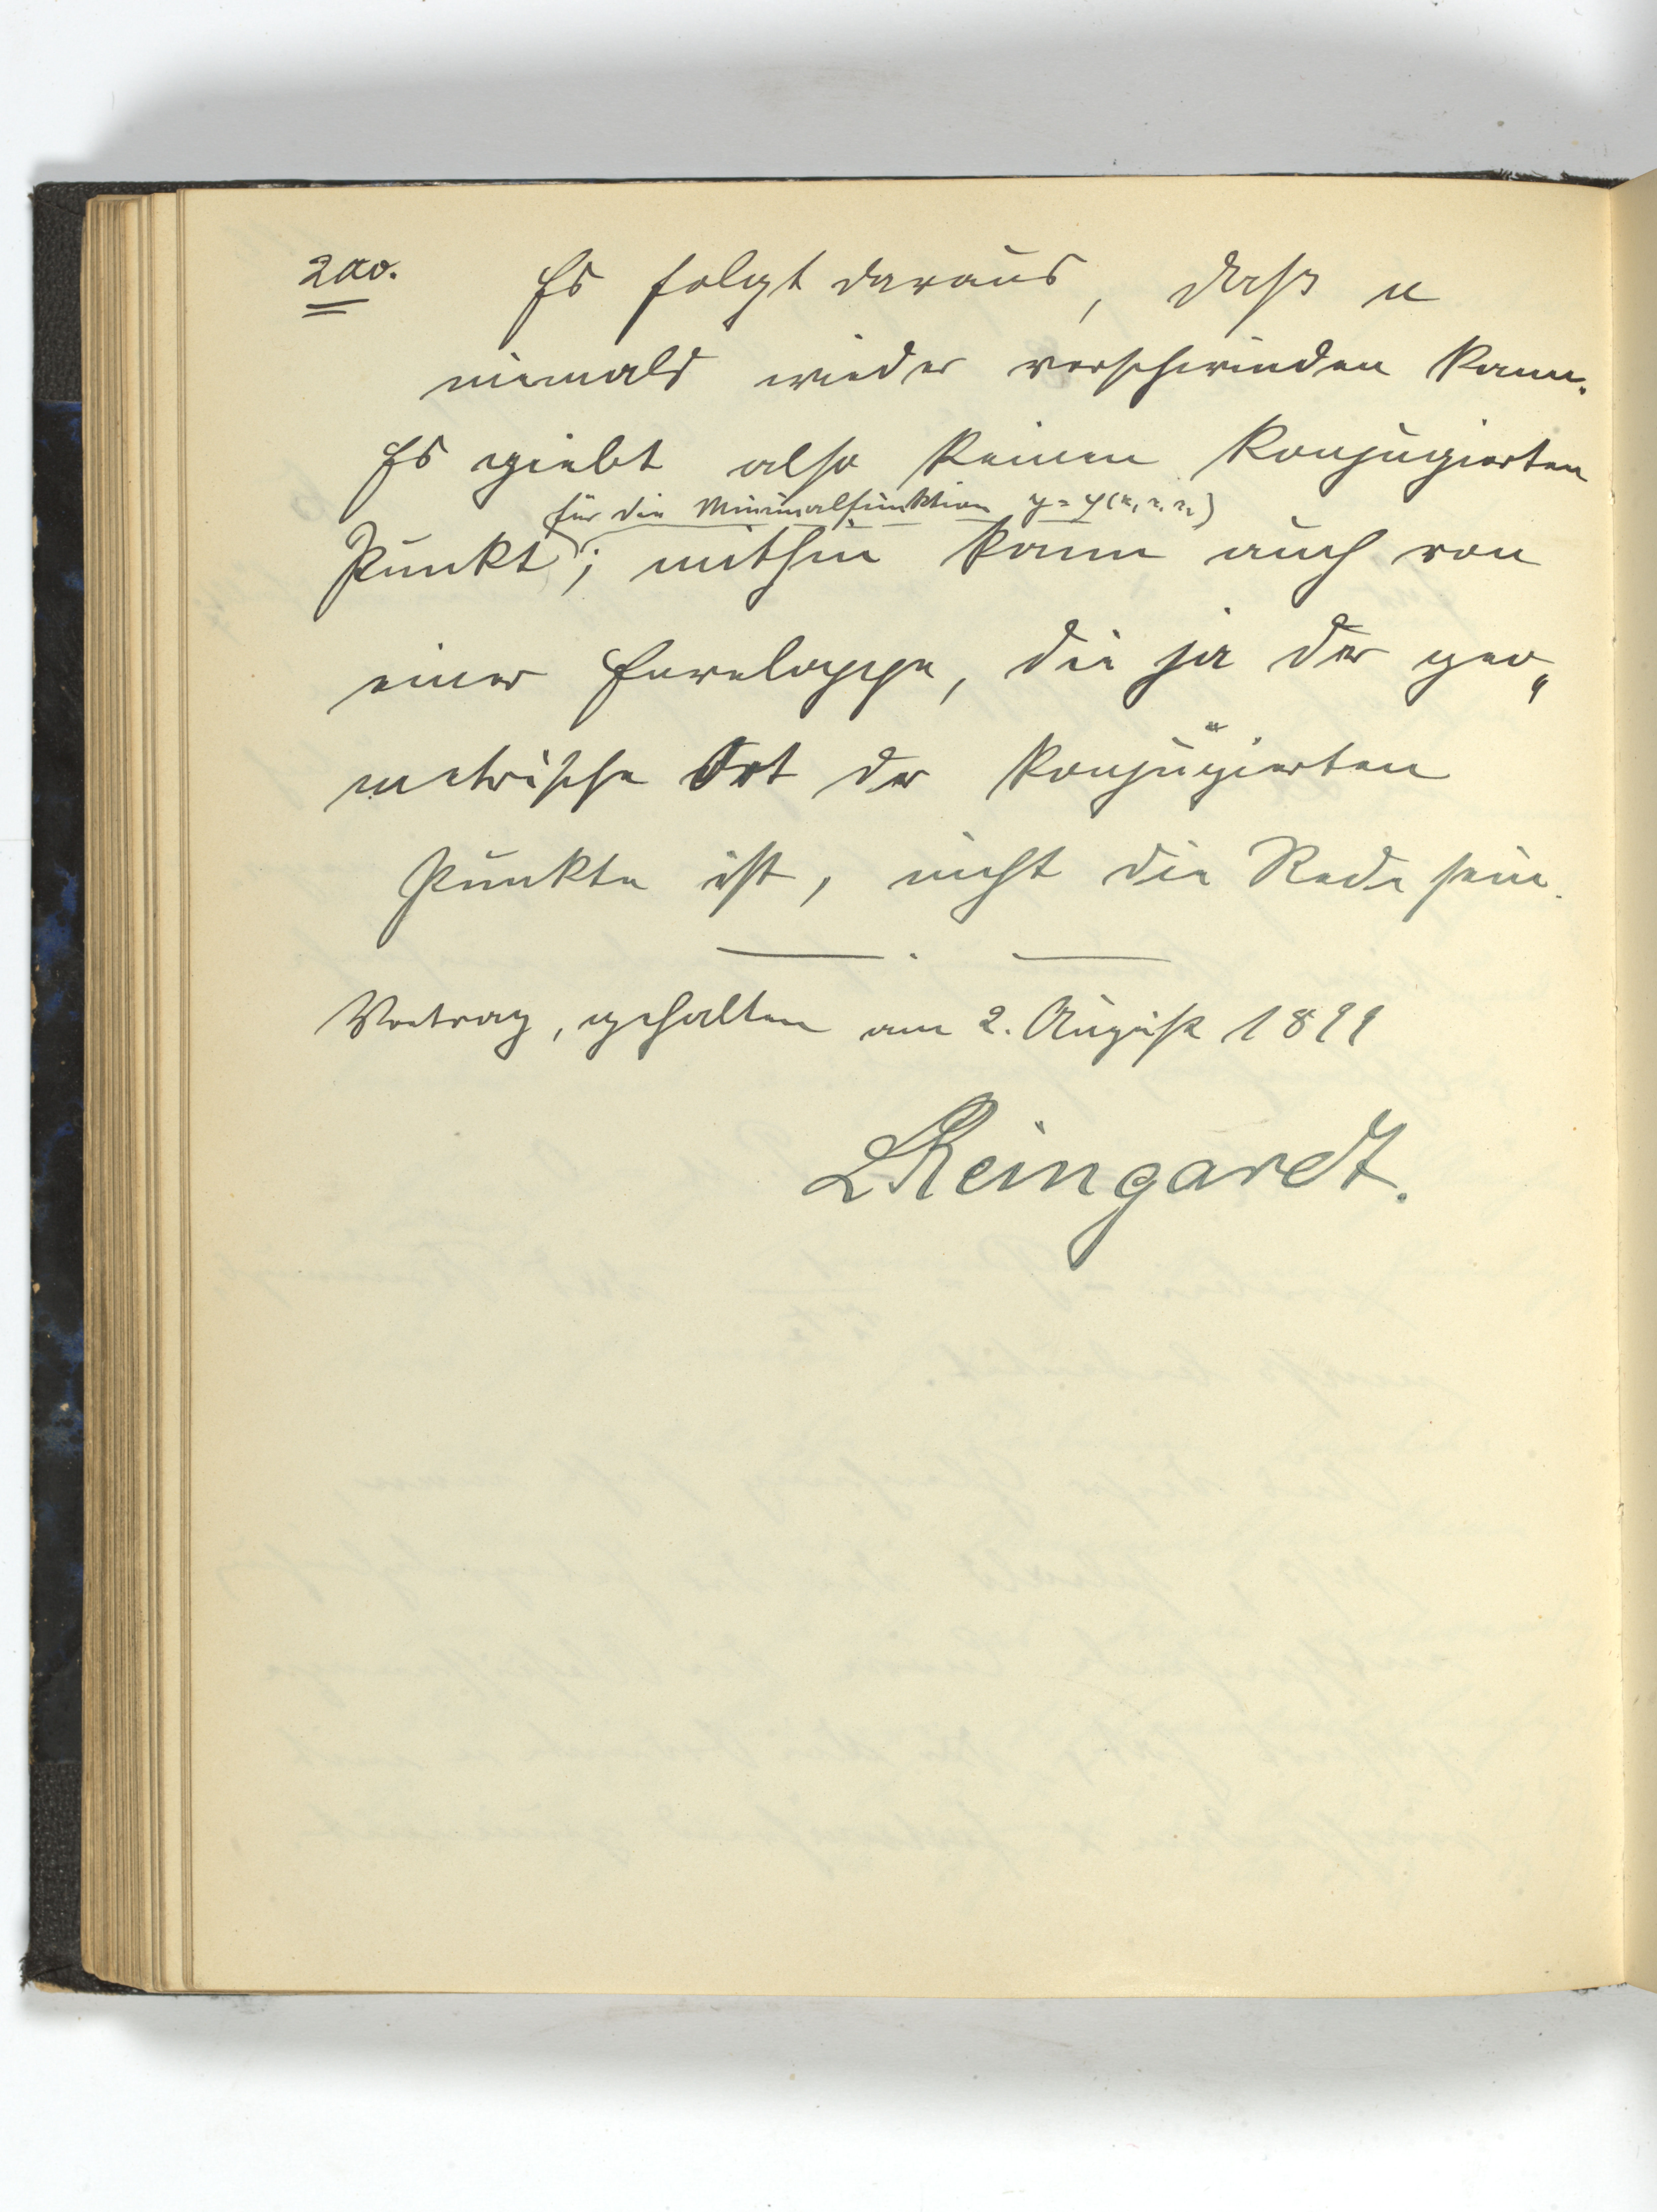 200.
Es folgt daraus, daſs u
niemals wieder verschwinden kann.
Es giebt also keinen konjugierten
für die Minimalfunktion
Punkt; mithin kann auch von
einer Enveloppe, die ja der geo„
metrische Ort der konjugierten
Punkte ist, nicht die Rede sein.
Vortrag, gehalten am 2. August 1899
LReingardt.